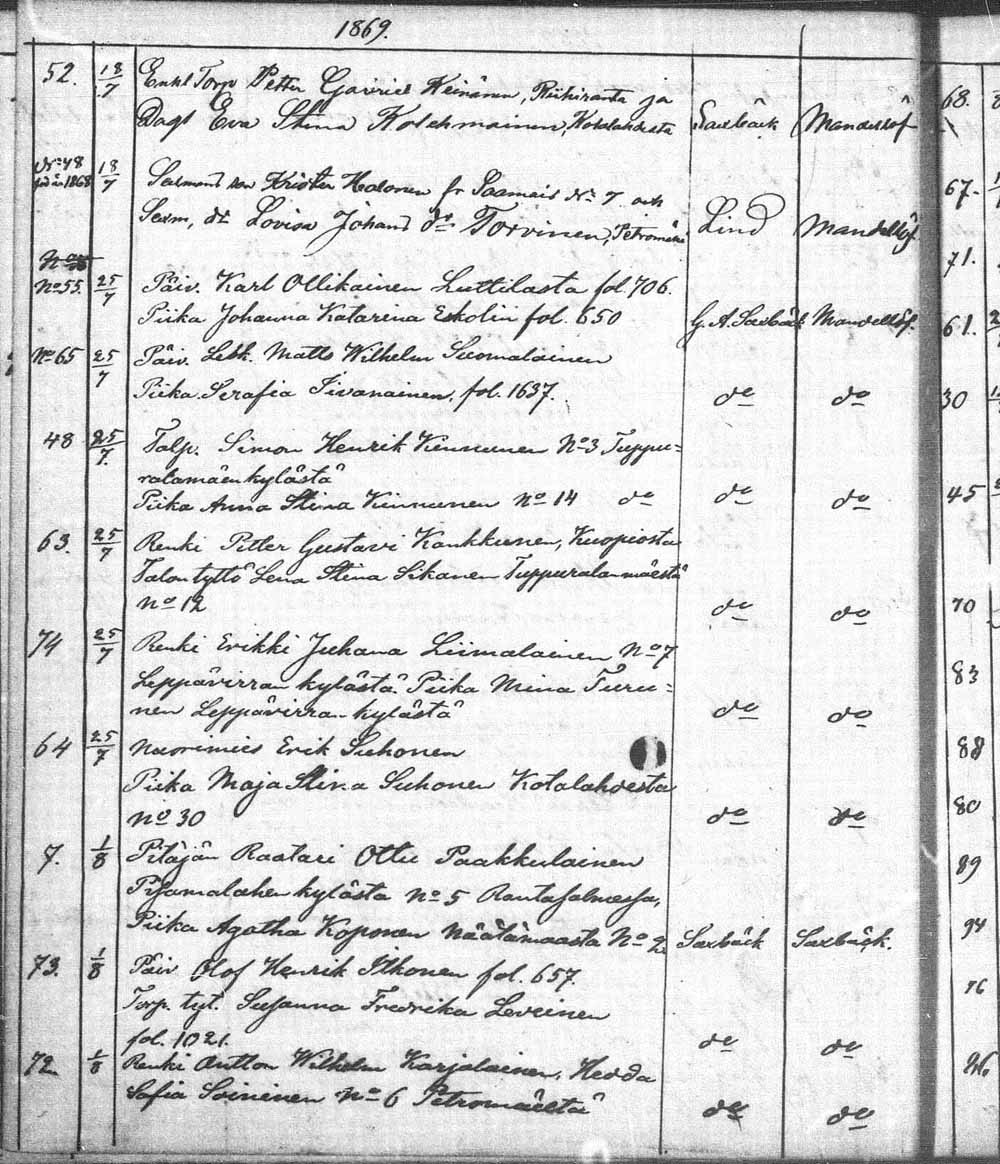 1869.
52. 18/7 Enkl Torp Petter Gabriel Keinänen, Riihiranta ja
Dagt Eva Stina Kolehmainen, Kotalahdesta Saxbäck Mandellöf
No 48 18/7
1868 Krister Halonen fr Saamais No 7 och
dr Lovisa Johans dr Torvinen, Petromäki Lind Mandellöf
No 55. 25/7 Päiv. Karl Ollikainen Luttilasta fol. 706.
Piika Johanna Katarina Eskolin fol. 650 G. A. Saxbäck Mandellöf.
No 65 25/7 Päiv. Lesk. Matts Wilhelm Suomalainen
Piika Serafia Iivanainen, fol. 1637. do do
48 25/7. Talp. Simon Henrik Kinnunen No 3 Tuppu-
ralamäen kylästä
Piika Anna Stina Kinnunen No 14 do do do
63. 25/7 Renki Petter Gustavi Kankkunen, Kuopiosta
Talon tyttö Lena Stina Sikanen Tuppuralanmäestä
No 12 do do
74 25/7 Renki Erikki Juhana Liimalainen No 7
Leppävirran kylästä. Piika Mina Turu-
nen Leppävirran kylästä do do
64 25/7 Nuorimies Erik Suhonen
Piika Maja Stina Suhonen Kotalahdesta
No 30 do do
7. 1/8 Pitäjän Raatari Ottu Paakkulainen
Pisamalahen kylästä No 5 Rantasalmessa,
Piika Agatha Koponen Näätämaasta No 2 Saxbäck Saxbäck.
73. 1/8 Päiv Olof Henrik Itkonen fol. 657.
Torp. tyt. Susanna Fredrika Leveinen
fol. 1021. do do
72. 1/8 Renki Antton Wilhelm Karjalainen, Hedda
Sofia Soininen No 6 Petromäeltä do do
68.
67.
71.
61.
30
45
70
83
88
80
89
94
76